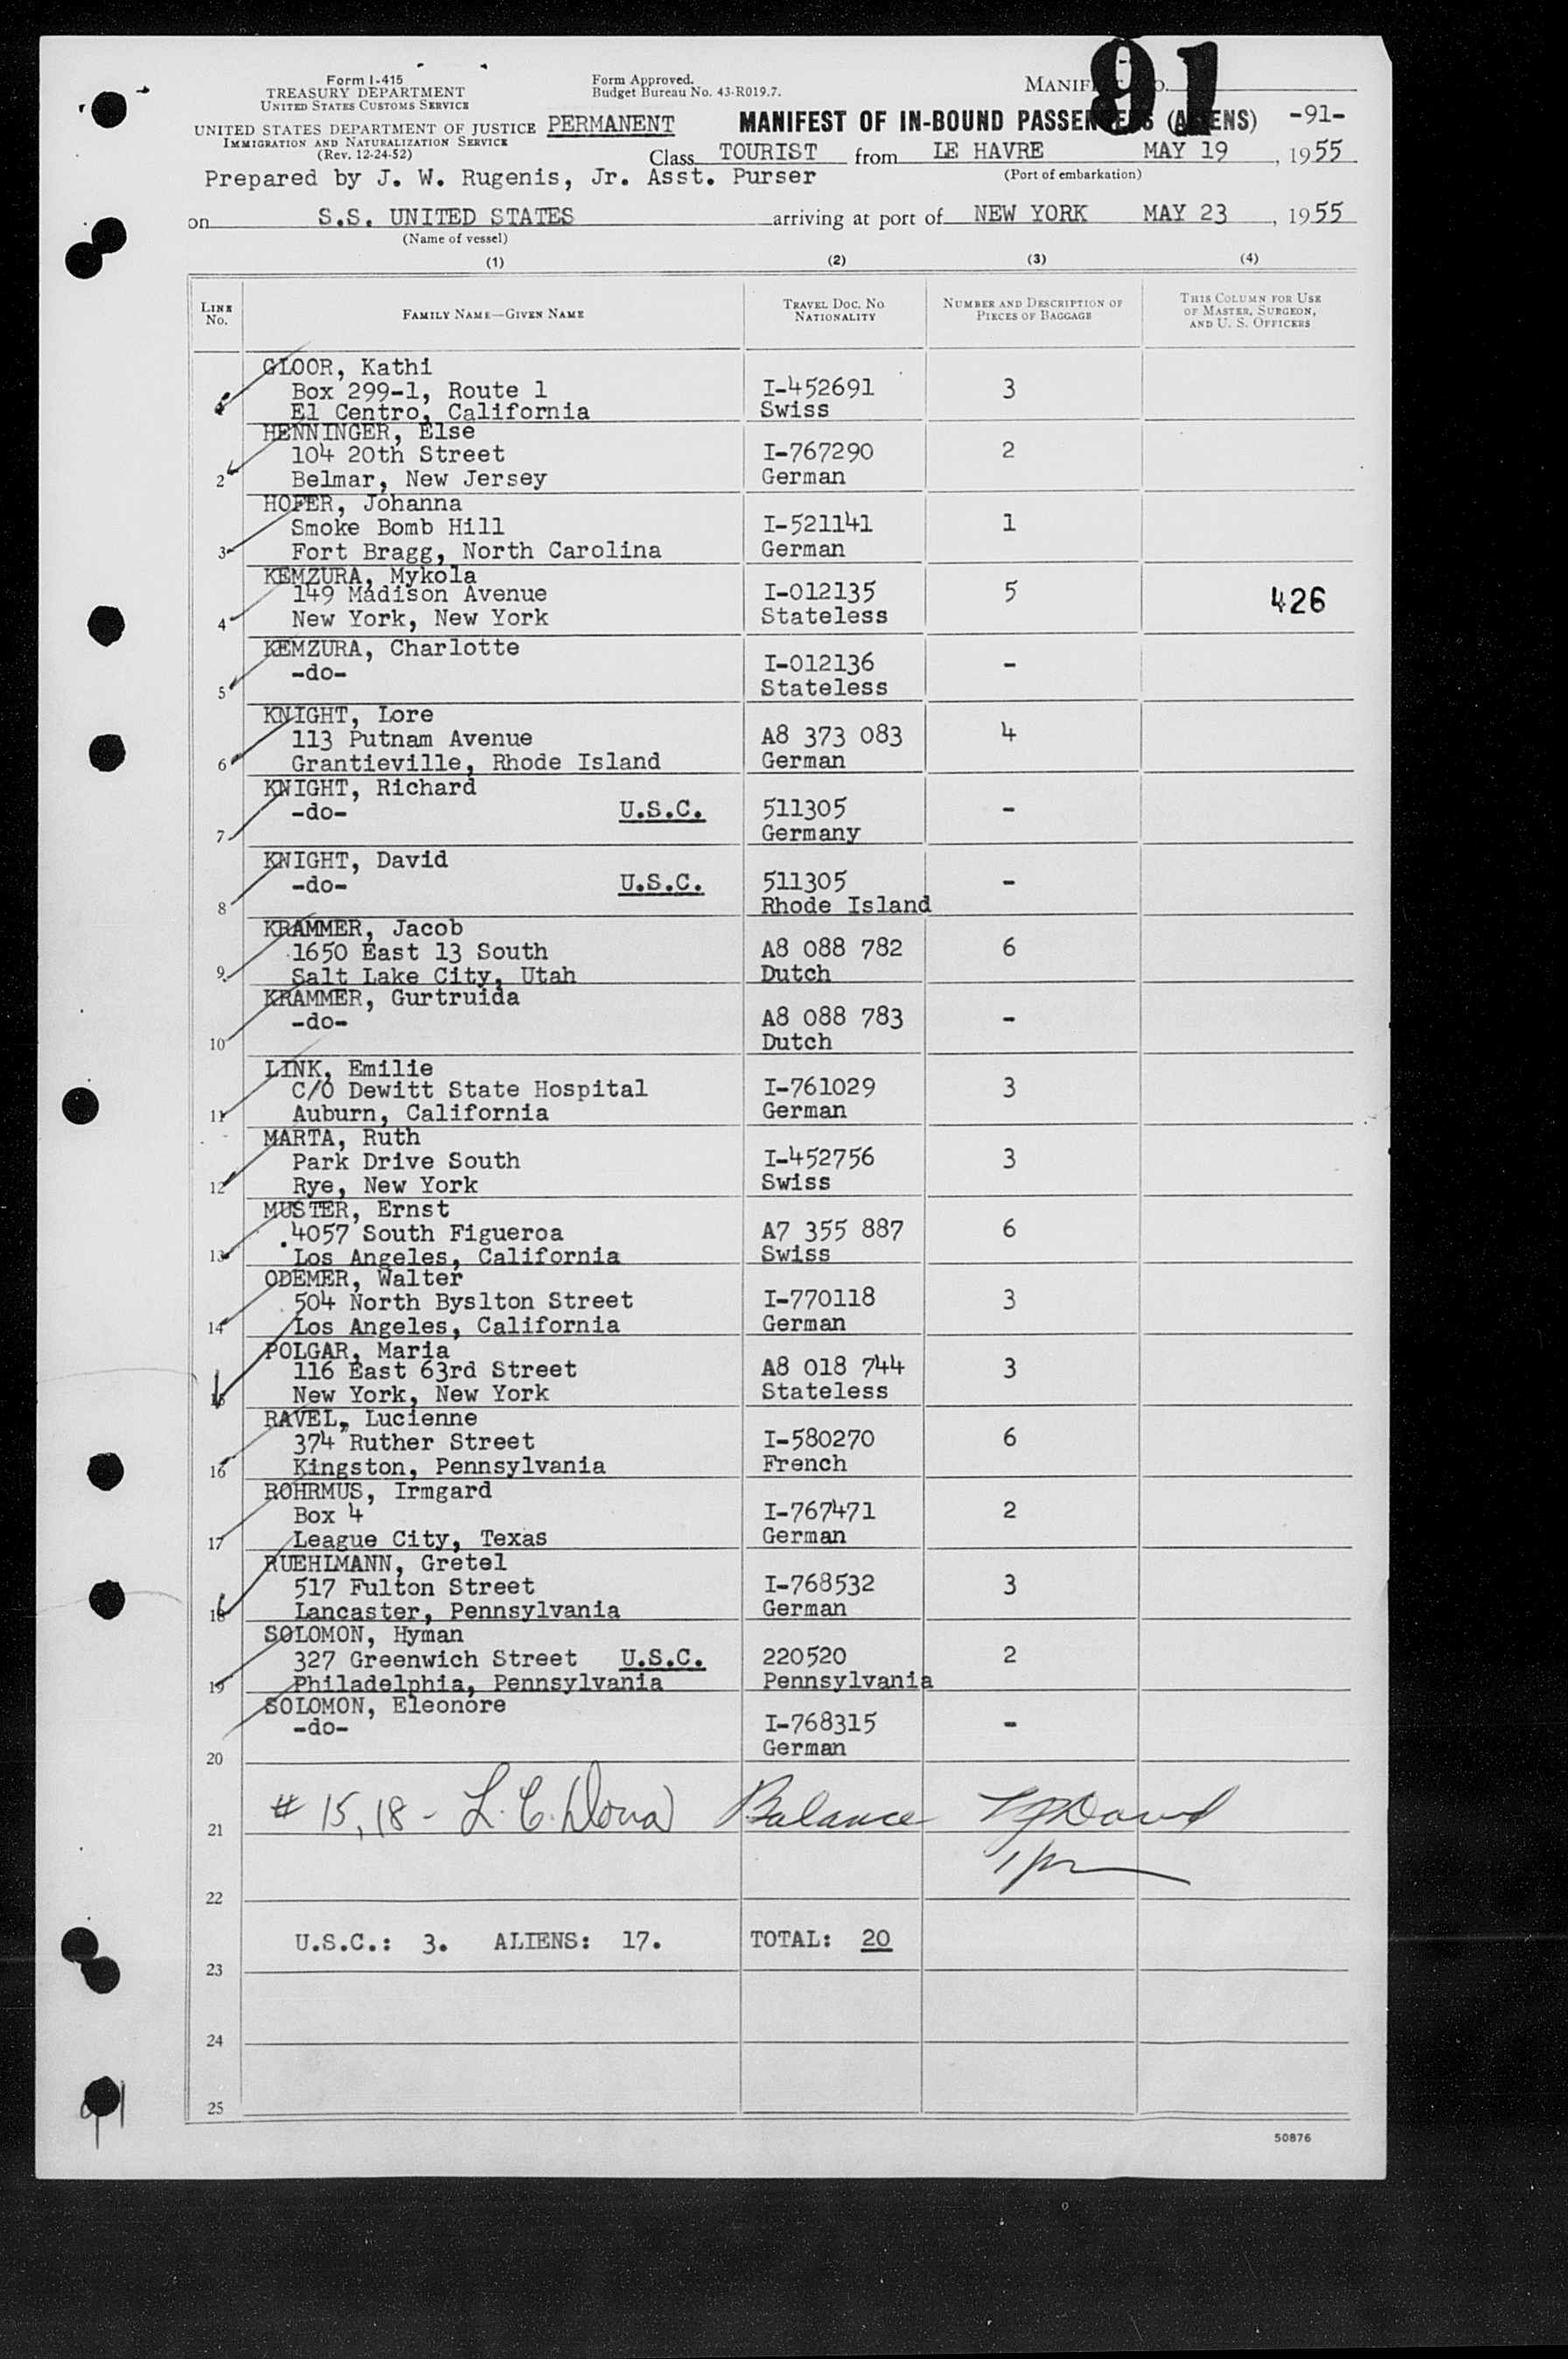 91
Form I-415
TREASURY DEPARTMENT
UNITED STATES CUSTOMS SERVICE
UNITED STATES DEPARTMENT OF JUSTICE
IMMIGRATION AND NATURALIZATION SERVICE
(Rev. 12-24-52)
Form Approved.
Budget Bureau No. 43-R019.7.
PERMANENT
MANIFEST OF IN-BOUND PASSENGERS (ALIENS) -91-
Class TOURIST from LE HAVRE MAY 19, 1955
(Port of embarkation)
Prepared by J. W. Rugenis, Jr. Asst. Purser
on S.S. UNITED STATES arriving at port of NEW YORK MAY 23, 1955
(Name of vessel)
(1) (2) (3) (4)
LINE No. FAMILY NAME—GIVEN NAME TRAVEL DOC. NO. NATIONALITY NUMBER AND DESCRIPTION OF PIECES OF BAGGAGE THIS COLUMN FOR USE OF MASTER, SURGEON, AND U. S. OFFICERS
GLOOR, Kathi
Box 299-1, Route 1 I-452691 3
El Centro, California Swiss
HENNINGER, Else
104 20th Street I-767290 2
2 Belmar, New Jersey German
HOFER, Johanna
Smoke Bomb Hill I-521141 1
3 Fort Bragg, North Carolina German
KEMZURA, Mykola
149 Madison Avenue I-012135 5 426
4 New York, New York Stateless
KEMZURA, Charlotte
-do- I-012136 -
5 Stateless
KNIGHT, Lore
113 Putnam Avenue A8 373 083 4
6 Grantieville, Rhode Island German
KNIGHT, Richard
-do- U.S.C. 511305 -
7 Germany
KNIGHT, David
-do- U.S.C. 511305 -
8 Rhode Island
KRAMMER, Jacob
1650 East 13 South A8 088 782 6
9 Salt Lake City, Utah Dutch
KRAMMER, Gurtruida
-do- A8 088 783 -
10 Dutch
LINK, Emilie
C/O Dewitt State Hospital I-761029 3
11 Auburn, California German
MARTA, Ruth
Park Drive South I-452756 3
12 Rye, New York Swiss
MUSTER, Ernst
4057 South Figueroa A7 355 887 6
13 Los Angeles, California Swiss
ODEMER, Walter
504 North Byslton Street I-770118 3
14 Los Angeles, California German
POLGAR, Maria
116 East 63rd Street A8 018 744 3
15 New York, New York Stateless
RAVEL, Lucienne
374 Ruther Street I-580270 6
16 Kingston, Pennsylvania French
ROHRMUS, Irmgard
Box 4 I-767471 2
17 League City, Texas German
RUEHLMANN, Gretel
517 Fulton Street I-768532 3
18 Lancaster, Pennsylvania German
SOLOMON, Hyman
327 Greenwich Street U.S.C. 220520 2
19 Philadelphia, Pennsylvania Pennsylvania
SOLOMON, Eleonore
-do- I-768315 -
20 German
21 # 15, 18 - L. C. Balance
22
U.S.C.: 3. ALIENS: 17. TOTAL: 20
23
24
25
91
50876